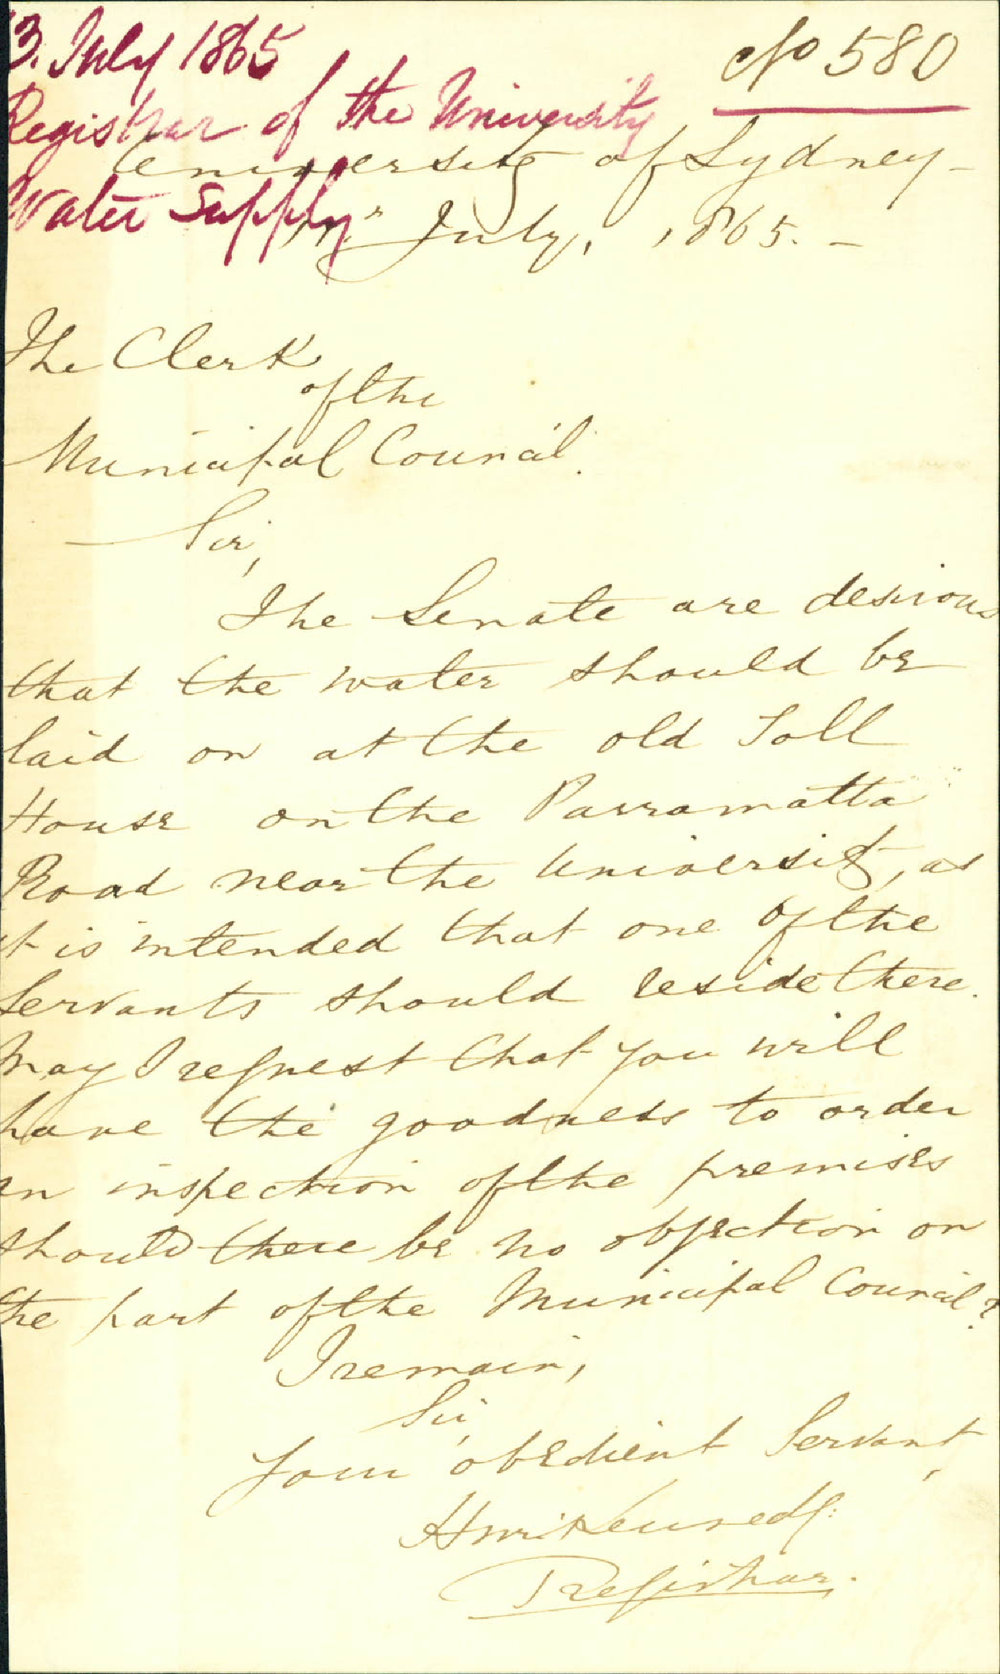 13. July 1865
No 580
Registrar of the University
Water Supply
University of Sydney -
July, 1865. -
The Clerk
of the
Municipal Council.
Sir,
The Senate are desirous
that the water should be
laid on at the old Toll
House on the Parramatta
Road near the University, as
it is intended that one of the
Servants should reside there.
May I request that you will
have the goodness to order
an inspection of the premises
should there be no objection on
the part of the Municipal Council?
I remain,
Sir,
Your obedient Servant,
Kennedy.
Registrar.